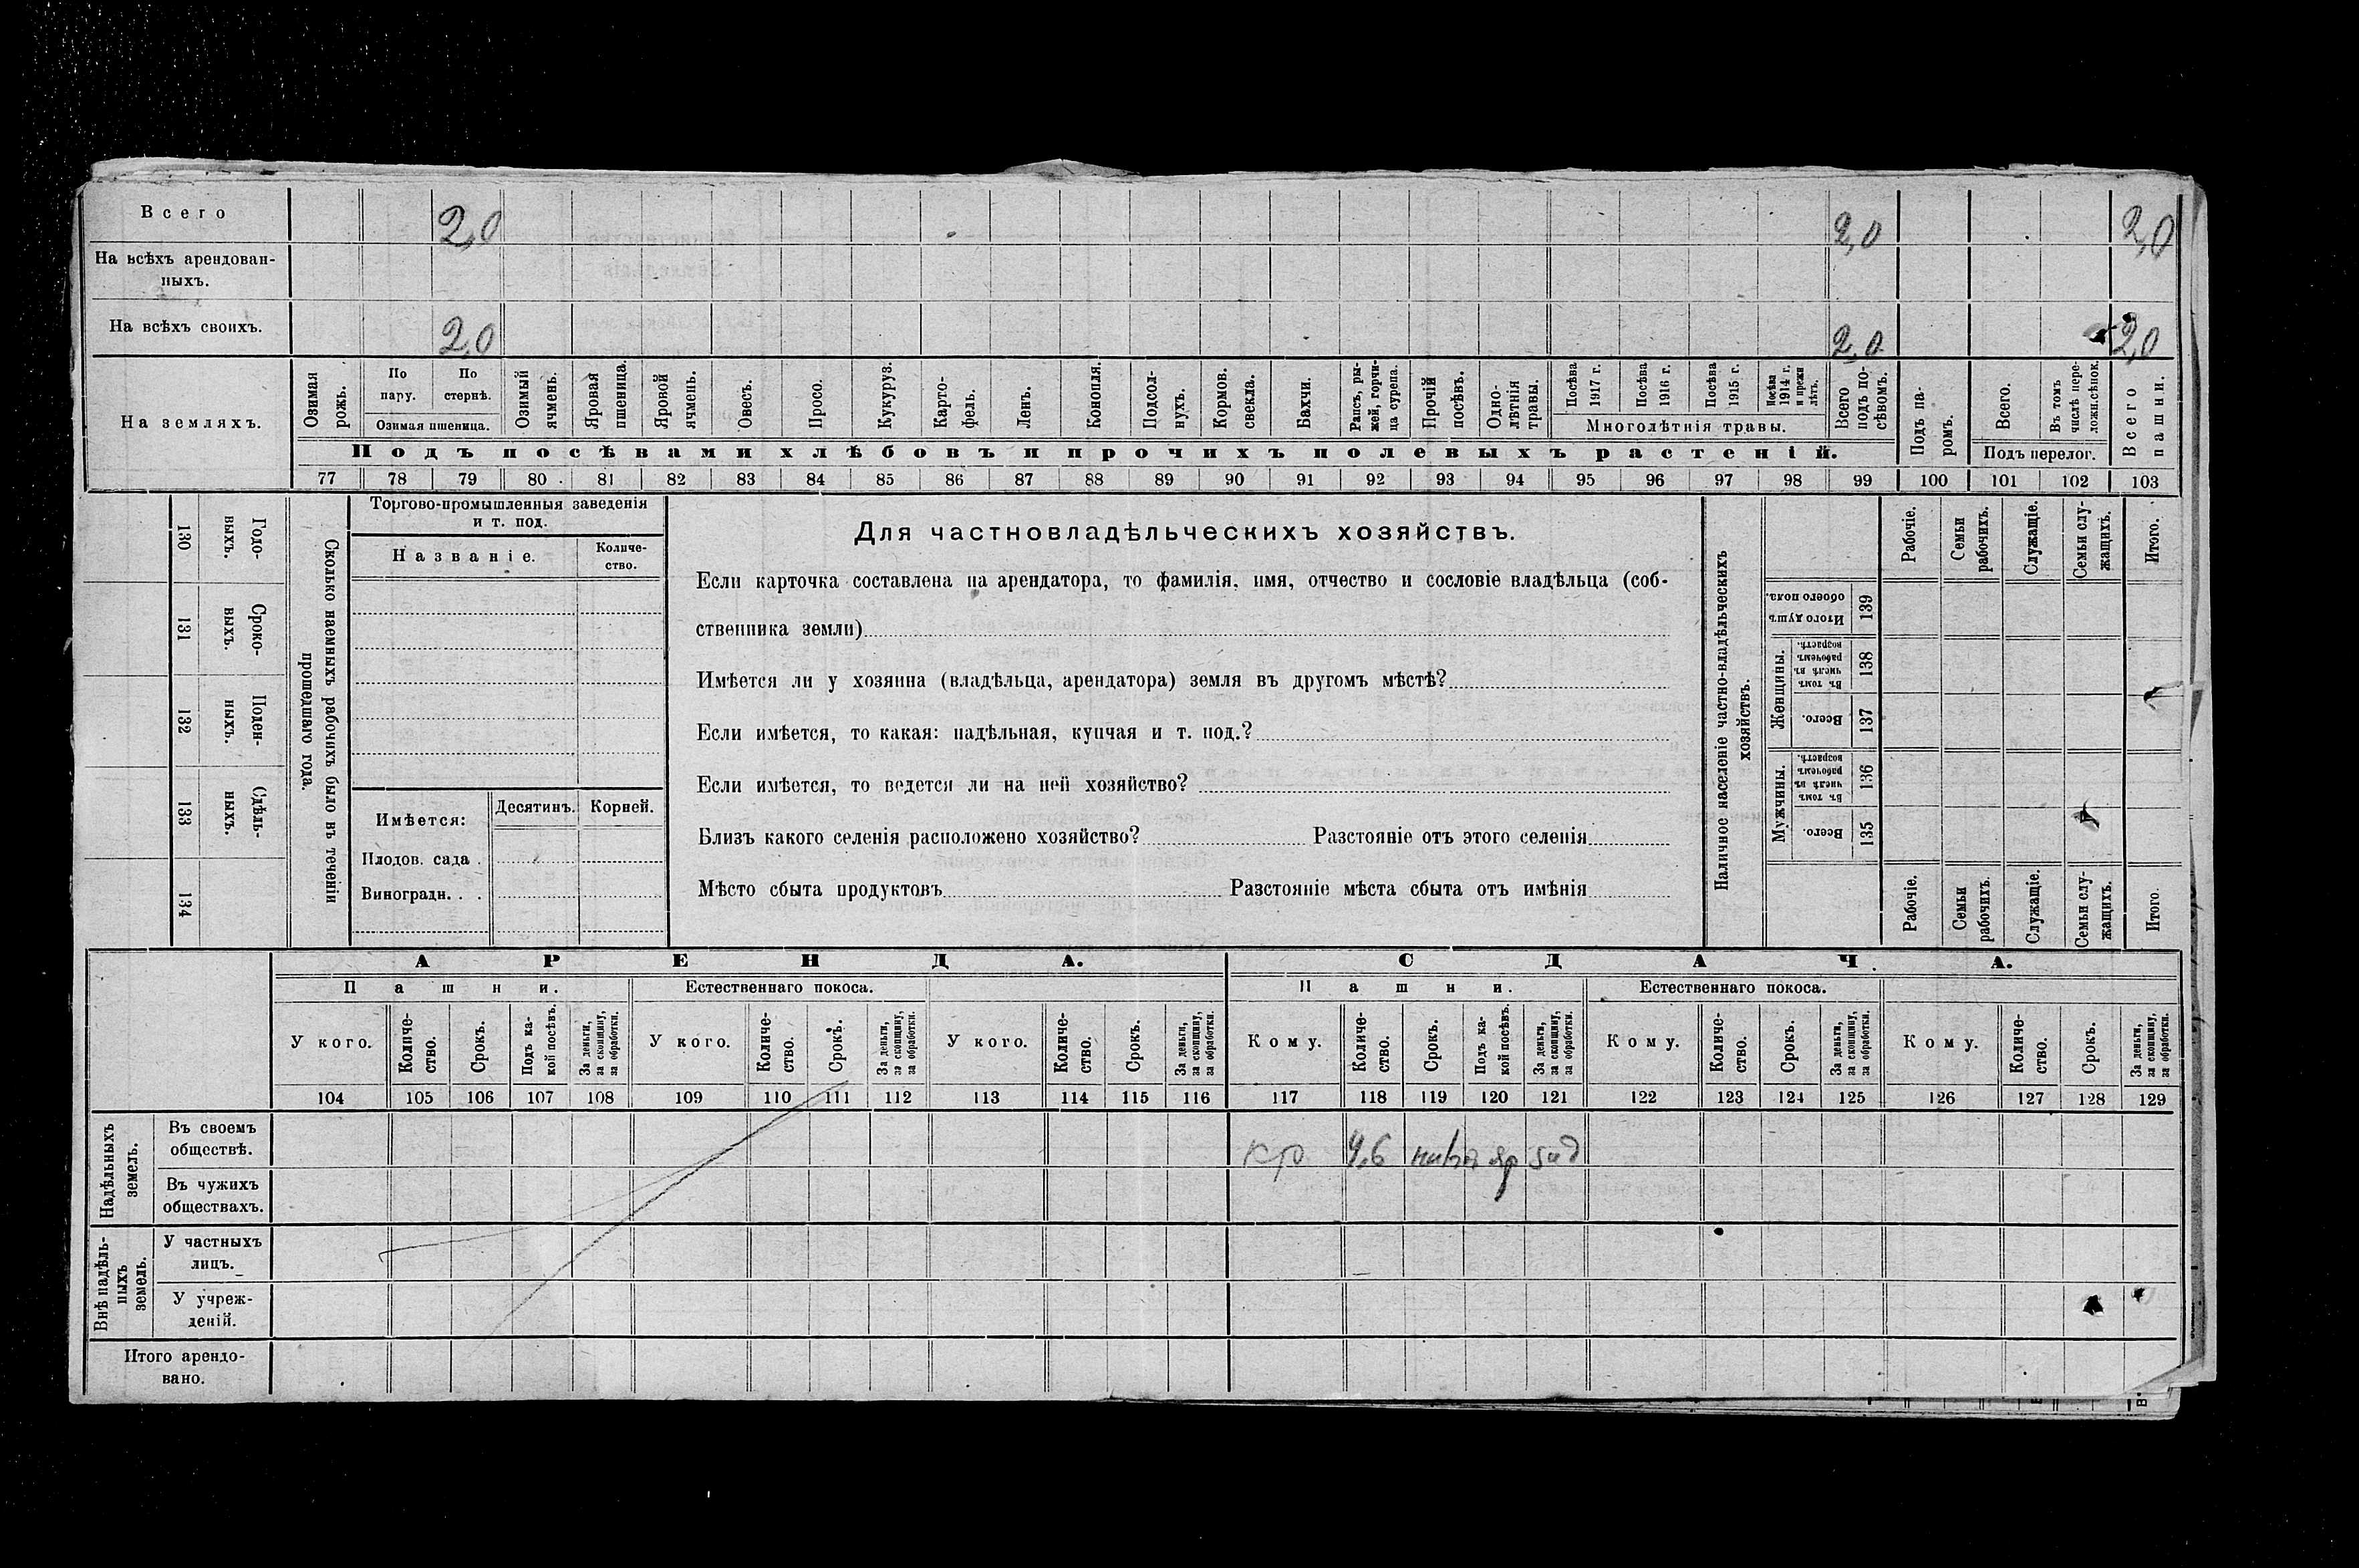 Всего 2,0 2,0 2,0
На всѣхъ арендован-
ныхъ.
На всѣхъ своихъ. 2,0 2,0 2,0
На земляхъ.
Озимая
рожь.
По
пару.
По
стернѣ.
Озимая пшеница.
Озимый
ячмень.
Яровая
пшеница.
Яровой
ячмень.
Овесъ.
Просо.
Кукуруз.
Карто-
фель.
Ленъ.
Конопля.
Подсол-
нухъ.
Кормов.
свекла.
Бахчи.
Рапсъ, ры-
жей, горчи-
ца сурепа.
Прочій
посѣвъ.
Одно-
лѣтнія
травы.
Посѣва
1917 г.
Посѣва
1916 г.
Посѣва
1915 г.
Посѣва
1914 г.
и прежн
лѣтъ.
Многолѣтнія травы.
Всего
подъ по-
сѣвомъ.
Подъ па-
ромъ.
Всего.
Въ томъ
числѣ пере-
ложн.сѣнок.
Подъ перелог.
Всего
пашни.
Подъ посѣвами хлѣбовъ и прочихъ полевыхъ растеній.
77 78 79 80 81 82 83 84 85 86 87 88 89 90 91 92 93 94 95 96 97 98 99 100 101 102 103
130
Годо-
выхъ.
131
Сроко-
выхъ.
132
Поден-
ныхъ.
133
Сдѣль-
ныхъ.
134
Сколько наемныхъ рабочихъ было въ теченіи
прошедшаго года.
Торгово-промышленныя заведенія
и т. под.
Названіе.
Количе-
ство.
Имѣется:
Десятинъ. Корней.
Плодов. сада .
Виноградн. . .
Для частновладѣльческихъ хозяйствъ.
Если карточка составлена на арендатора, то фамилія, имя, отчество и сословіе владѣльца (соб-
ственника земли)
Имѣется ли у хозяина (владѣльца, арендатора) земля въ другомъ мѣстѣ?
Если имѣется, то какая: надѣльная, купчая и т. под.?
Если имѣется, то ведется ли на ней хозяйство?
Близъ какого селенія расположено хозяйство? Разстояніе отъ этого селенія
Мѣсто сбыта продуктовъ Разстояніе мѣста сбыта отъ имѣнія
Наличное населеніе частно-владѣльческихъ
хозяйствъ.
Рабочіе.
Семьи
рабочихъ.
Служащіе.
Семьи слу-
жащихъ.
Итого.
Итого душъ
обоего пола.
139
Женщины.
Въ томъ
числѣ въ
рабочемъ
возрастѣ.
138
Всего.
137
Мужчины.
Въ томъ
числѣ въ
рабочемъ
возрастѣ.
136
Всего.
135
Рабочіе.
Семьи
рабочихъ.
Служащіе.
Семьи слу-
жащихъ.
Итого.
АРЕНДА. СДАЧА.
Пашни. Естественнаго покоса. Пашни. Естественнаго покоса.
У кого.
Количе-
ство.
Срокъ.
Подъ ка-
кой посѣвъ.
За деньги,
за скопщину,
за обработки.
У кого.
Количе-
ство.
Срокъ.
За деньги,
за скопщину,
за обработки.
У кого.
Количе-
ство.
Срокъ.
За деньги,
за скопщину,
за обработки.
Кому.
Количе-
ство.
Срокъ.
Подъ ка-
кой посѣвъ.
За деньги,
за скопщину,
за обработки.
Кому.
Количе-
ство.
Срокъ.
За деньги,
за скопщину,
за обработки.
Кому.
Количе-
ство.
Срокъ.
За деньги,
за скопщину,
за обработки.
104 105 106 107 108 109 110 111 112 113 114 115 116 117 118 119 120 121 122 123 124 125 126 127 128 129
Надѣльныхъ
земель.
Въ своемъ
обществѣ.
кр
Въ чужихъ
обществахъ.
Внѣ надѣль-
ныхъ
земель.
У частныхъ
лицъ.
У учреж-
деній.
Итого арендо-
вано.